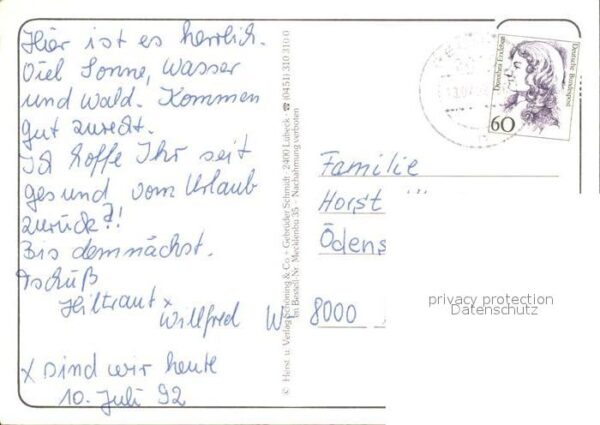 Hier ist es herrlich.
Viel Sonne, Wasser
und Wald. Kommen
gut zurecht.
Ich hoffe Ihr seit
gesund vom Urlaub
zurück?!
Bis demnächst.
Tschüß
Hiltraut x
Willfred
x sind wir heute
10. Juli 92
© Herst. u. Verlag Schöning & Co + Gebrüder Schmidt · 2400 Lübeck · ☎ (0451) 31 03 10-0
Im Bestell-Nr. Mecklenbu 35 – Nachahmung verboten
Dorothea Erxleben
Deutsche Bundespost
60
Familie
Horst
Ödens
W- 8000
privacy protection
Datenschutz